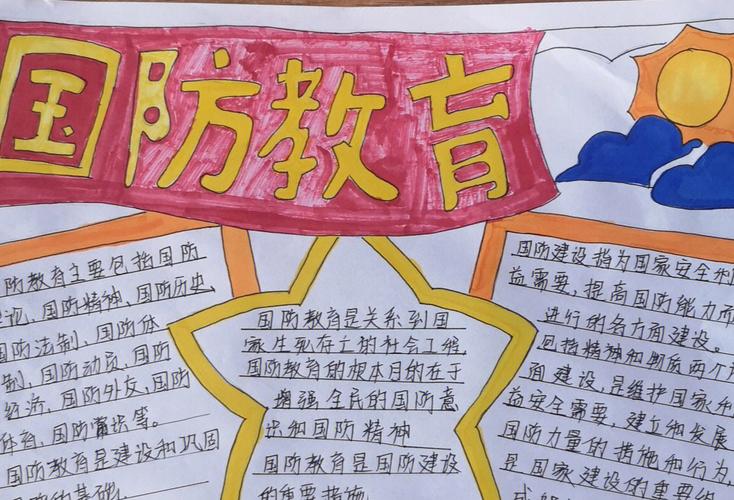 国防教育
防教育主要包括国防
论、国防精神、国防历史、
国防法制、国防体
制、国防动员、国防
经济、国防外交、国防
体育、国防常识等。
国防教育是建设和巩固
国防的基础,
国防教育是关系到国
家生死存亡的社会工程,
国防教育的根本目的在于
增强全民的国防意
识和国防精神
国防教育是国防建设
的重要措施
国防建设指为国家安全利
益需要,提高国防能力而
进行的各方面建设。
包括精神和物质两个方
面建设,是维护国家利
益安全需要,建立和发展
国防力量的措施和行为,
是国家建设的重要组